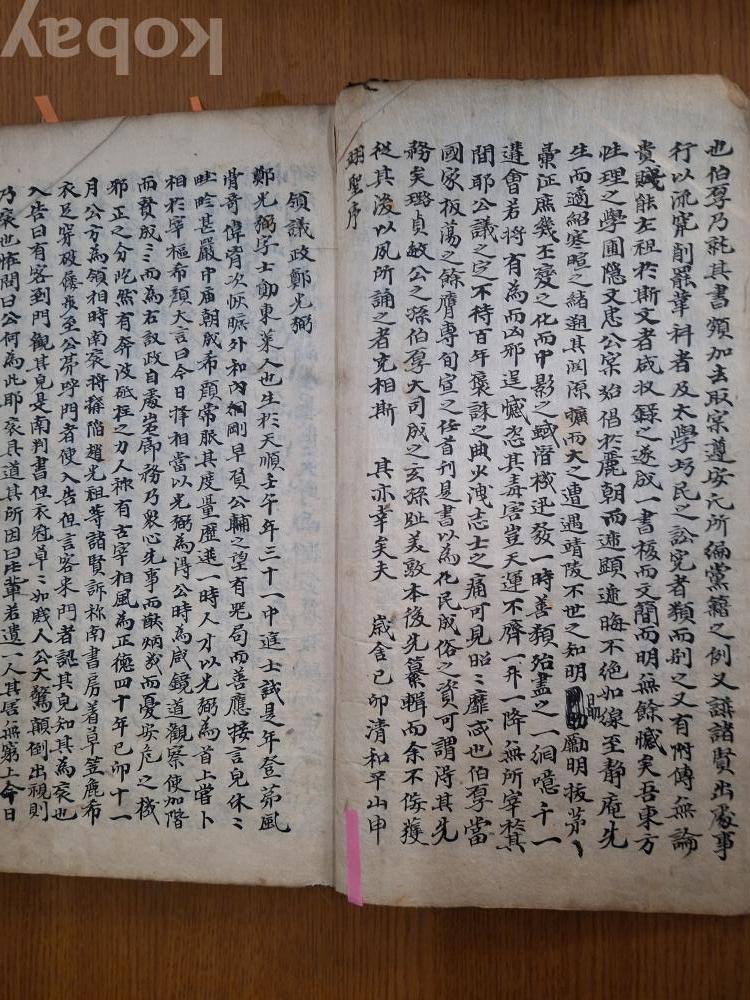 kobay
也伯厚乃託其書頗加去取寀遵安氏所編黨籍之例又諱諸賢出處事
行以流竄削罷等科者及太學坊民之訟寃者類而別之又有附傳無論
貴賤能左祖於斯文者咸收錄之遂成一書板而文簡而明無餘憾矣吾東方
性理之學圃隱文忠公寀始倡於麗朝而迹顯迹晦不絶如線至靜庵先
生而適紹寒暄之緒溯其淵源擴而大之遭遇靖陵不世之知明勵明拔茅
彙征庶幾丕變之化而中影之蜮潛機迅發一時善類殆盡之一網噫千一
遘會若將有為而凶邪逞憾恣其毒害豈天運不齊一升一降無所宰於其
間耶公議之定不待百年褒誅之典少洩志士之痛可見昭昭靡忒也伯厚當
國家板蕩之餘膺專旬宣之任首刊是書以為化民成俗之資可謂得其先
務矣璐貞敏公之孫伯厚大司成之玄孫趾美敦本後先纂輯而余不侫獲
從其後以夙所誦之者克相斯 其亦幸矣夫 歲舍己卯清和平山申
翊聖序
領議政鄭光弼
鄭光弼字士勛東萊人也生於天順壬午年三十一中進士試是年登第風
骨奇偉胷次恢曠外和內剛早負公輔之望有器局而善應接言皃休ミ
吐唅甚嚴中庙朝成希顔常服其度量歷選一時人才以光弼為首上嘗卜
相於宰樞希顔大言曰今日擇相當以光弼為得公時為咸鏡道觀察使加階
而賛成ミ而為右議政自處岩廊務乃衆心先事而猷炳幾而憂安危之機
邪正之分屹然有奔波砥柱之力人称有古宰相風為正德四十年己卯十一
月公方為領相時南袞将搆陷趙光祖等諸賢訴称南書房着草笠麁布
衣足穿破僂夜至公第呼門者使入告但言客来門者認其皃知其為袞也
入告曰有客到門觀其皃是南判書但衣冠草ミ如賎人公大驚顛倒出視則
乃袞也恠問曰公何為此耶袞具道其所因曰此輩若遺一人其居無窮上今日